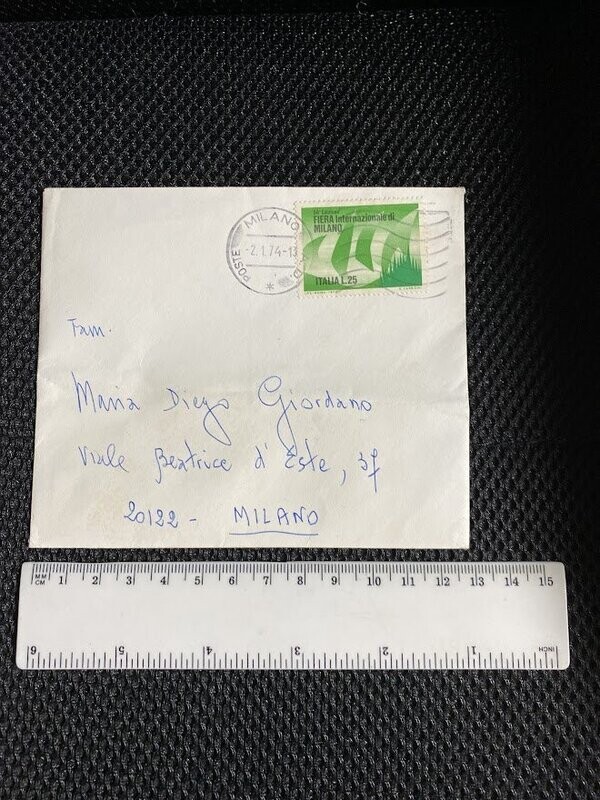 MILANO
POSTE
-2.1.74-13
FIERA Internazionale di
MILANO
ITALIA L.25
Fam.
Maria Diego Giordano
Viale Beatrice d'Este,
20122 - MILANO
MM
CM
1 2 3 4 5 6 7 8 9 10 11 12 13 14 15
6 5 4 3 2 1 INCH